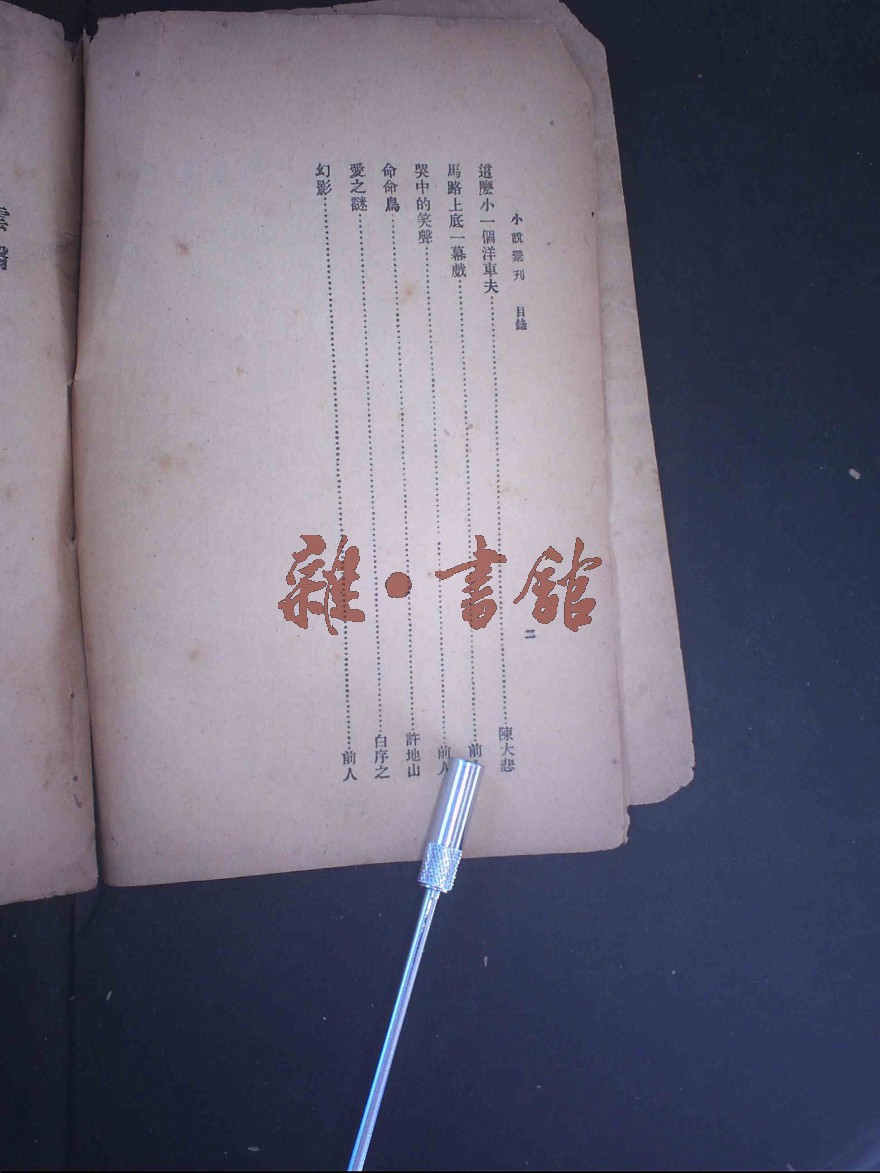 小說彙刊 目錄 二
這麼小一個洋車夫……陳大悲
馬路上底一幕戲……前
哭中的笑聲……前人
命命鳥……許地山
愛之謎……白序之
幻影……前人
雜·書館